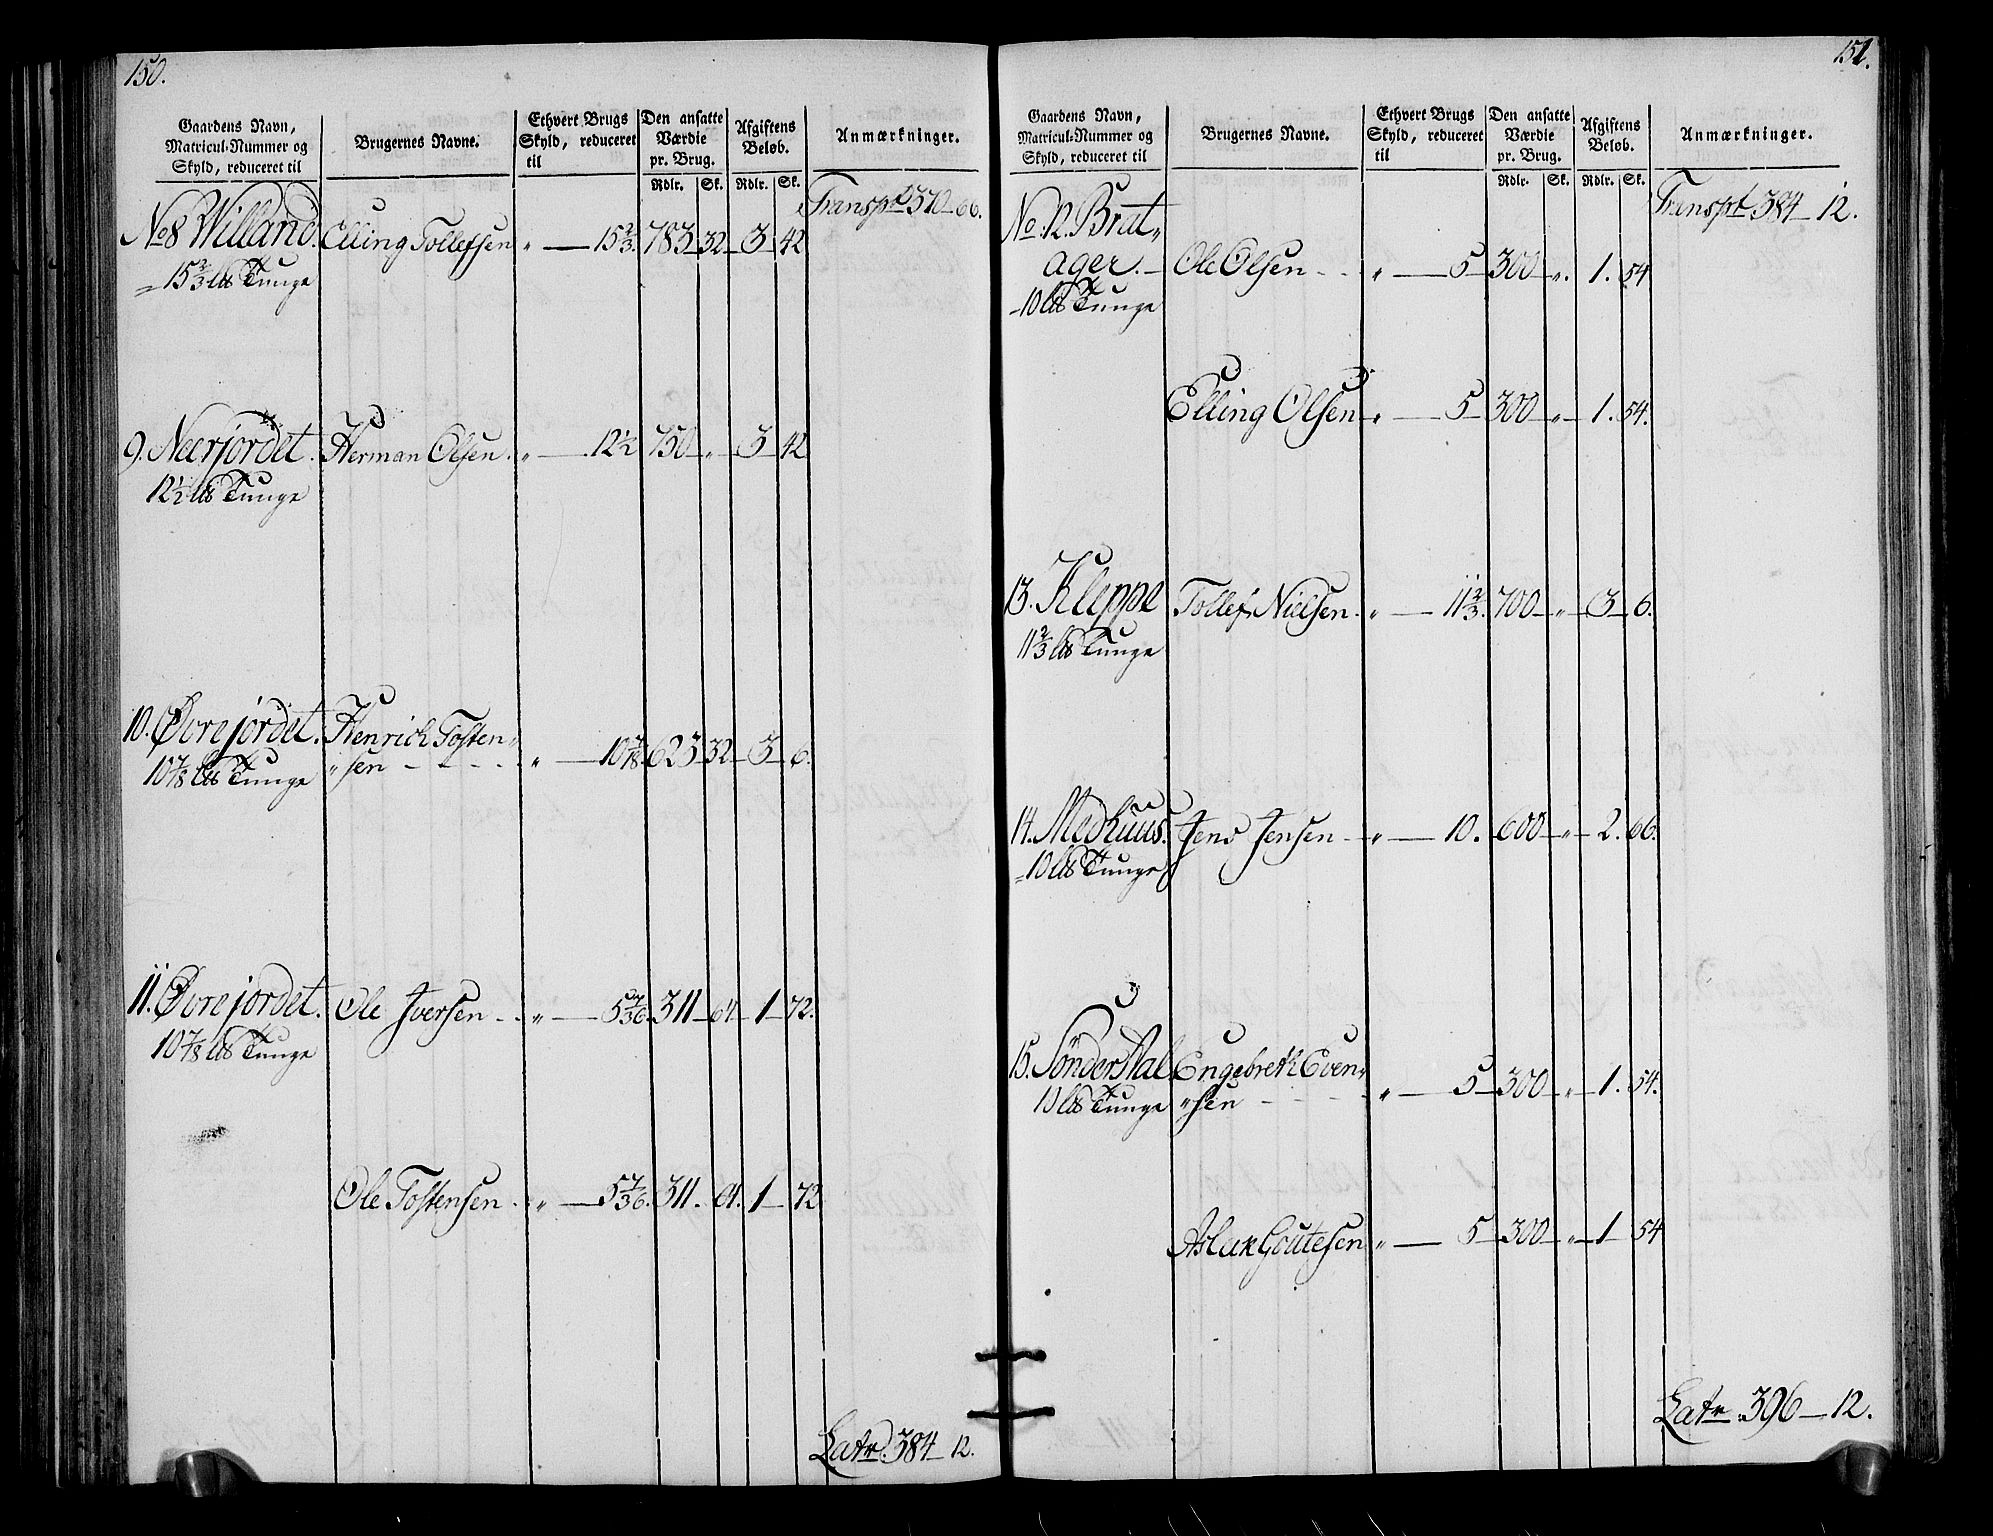 150.
Gaardens Navn, Matricul-Nummer og Skyld, reduceret til
Brugernes Navne.
Ethvert Brugs Skyld, reduceret til
Den ansatte Værdie pr. Brug.
Afgiftens Beløb.
Anmærkninger.
Rdlr. Sk. Rdlr. Sk.
Transpt 370 — 66.
No 8 Willand. Elling Tollefsen „ — 15 2/3. 783 — 32 — 3 — 42
15 2/3 Lb Tunge
9. Neerjordet. Herman Olsen. „ — 12 1/2 750 „ — 3 — 42
12 1/2 Lb Tunge
10. Øvrejordet. Henrich Tosten„
10 7/18 Lb Tunge „sen „ — 10 7/18. 623 — 32 — 3 — 6.
11. Øvrejordet. Ole Iversen „ — 5 7/36. 311 — 64 — 1 — 72.
10 7/18 Lb Tunge
Ole Tostensen „ — 5 7/36. 311. 64. 1 — 72
Latr. 384 — 12.
151.
Gaardens Navn, Matricul-Nummer og Skyld, reduceret til
Brugernes Navne.
Ethvert Brugs Skyld, reduceret til
Den ansatte Værdie pr. Brug.
Afgiftens Beløb.
Anmærkninger.
Rdlr. Sk. Rdlr. Sk.
Transpt 384 — 12.
No. 12. Brat„
ager. — Ole Olsen „ — 5 — 300 — „. 1. 54
10 Lb Tunge
Elling Olsen „ — 5 — 300 „ — 1. 54.
13. Kleppe Tollef Nielsen. „ — 11 2/3. 700 — „ — 3 — 6.
11 2/3 Lb Tunge
14. Medhuus. Jens Jensen „ — 10. 600 — „ — 2. 66.
10 Lb Tunge
15. Sønder Aal Engebreth Even„
10 Lb Tunge „sen „ — 5 — 300 — „ — 1. 54.
Aslak Goutesen „ — 5 — 300 — „ — 1 — 54
Latr. 396 — 12.